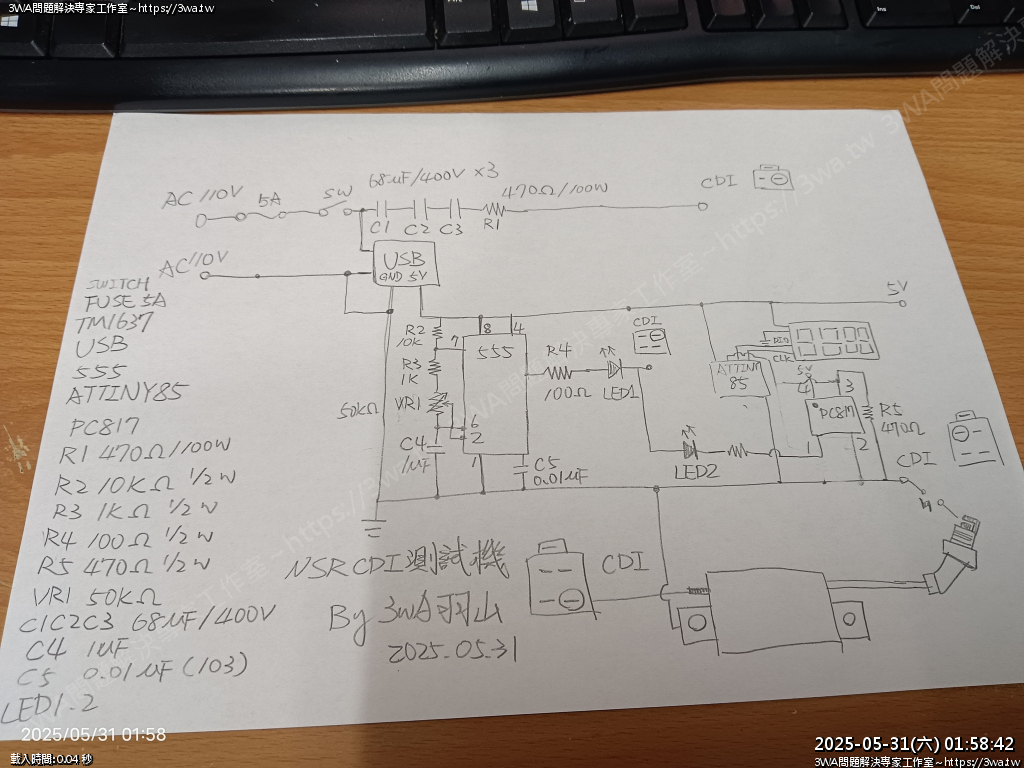 3WA問題解決專家工作室~https://3wa.tw
2025-05-31(六) 01:58:42
3WA問題解決專家工作室~https://3wa.tw
2025/05/31 01:58
載入時間:0.04 秒
AC 110V
5A
SW
68uF/400V x3
C1
C2
C3
470Ω/100W
R1
CDI
AC 110V
USB
GND 5V
5V
R2
10K
R3
1K
50KΩ
VR1
C4
1uF
7
8
4
555
6
2
1
C5
0.01uF
R4
100Ω
LED1
CDI
LED2
ATTINY
85
DIO
CLK
5V
4
3
PC817
1
2
R5
470Ω
CDI
SWITCH
FUSE 5A
TM1637
USB
555
ATTINY85
PC817
R1 470Ω/100W
R2 10KΩ 1/2W
R3 1KΩ 1/2W
R4 100Ω 1/2W
R5 470Ω 1/2W
VR1 50KΩ
C1C2C3 68uF/400V
C4 1uF
C5 0.01uF(103)
LED1.2
NSR CDI測試機
By 3WA羽山
2025.05.31
CDI